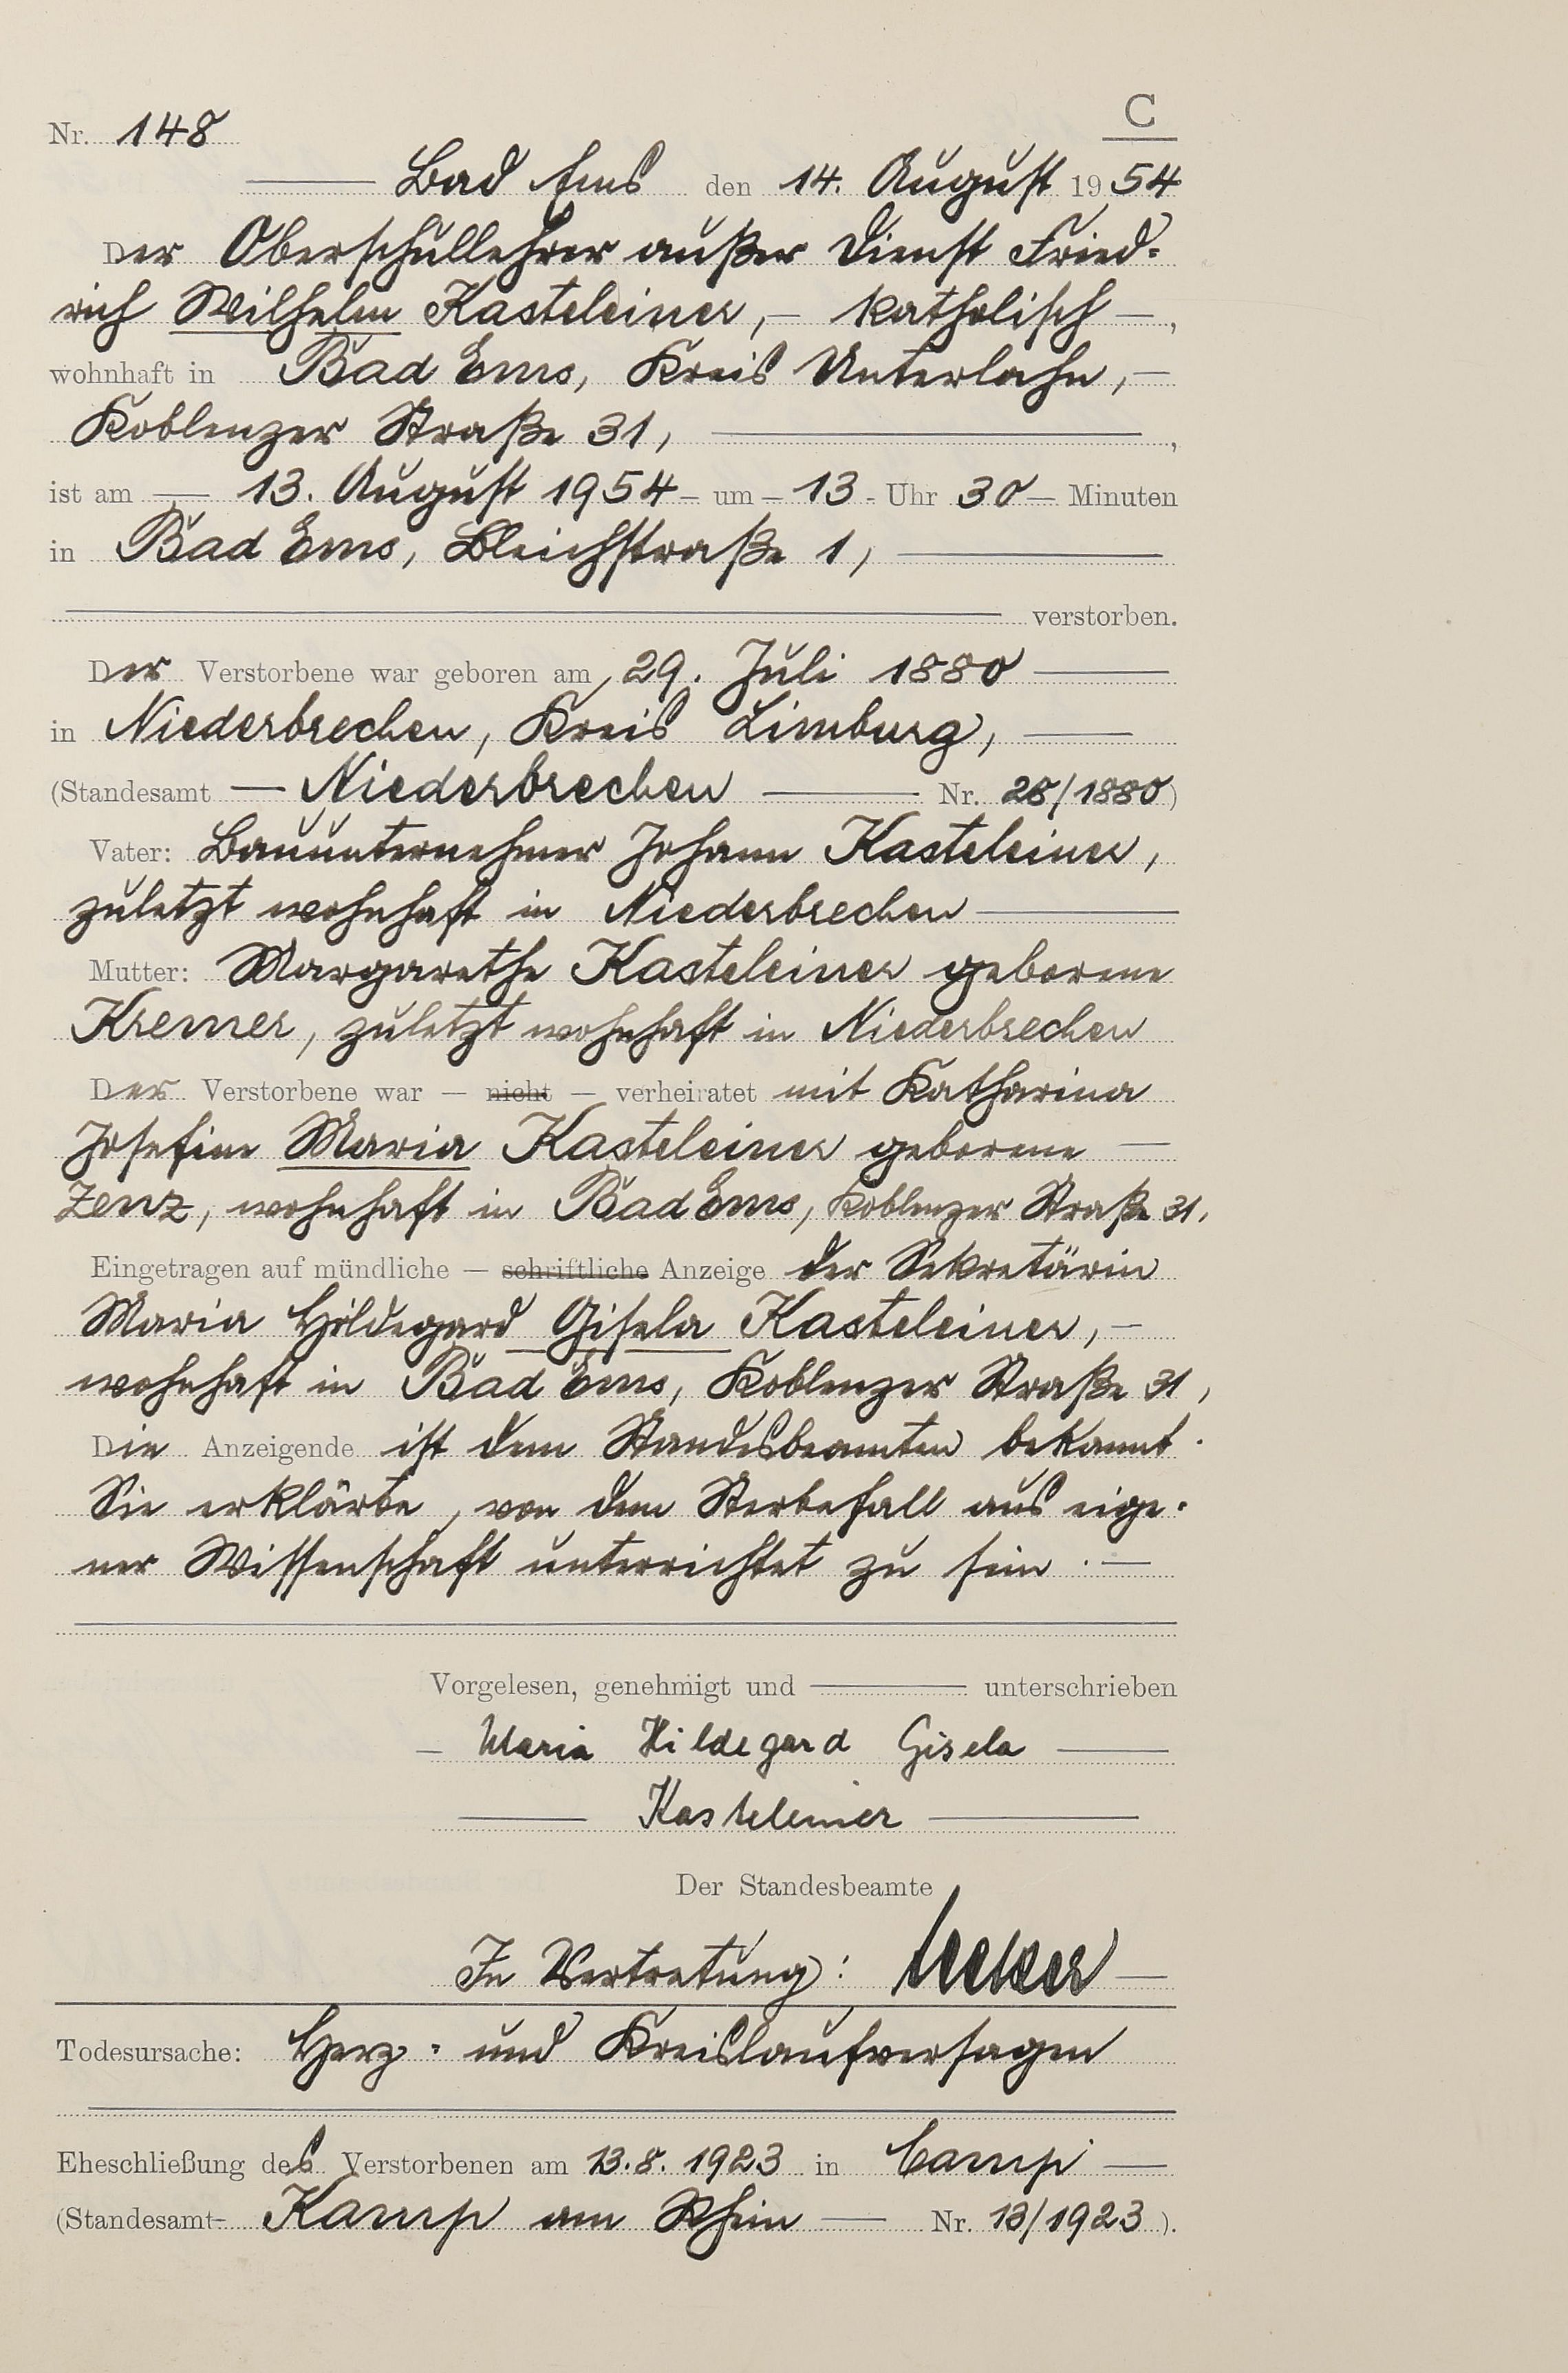 C
Nr. 148
Bad Ems den 14. August 1954
Der Oberschullehrer außer Dienst Fried-
rich Wilhelm Kasteleiner, – katholisch –,
wohnhaft in Bad Ems, Kreis Unterlahn, –
Koblenzer Straße 31, ,
ist am — 13. August 1954 – um – 13 - Uhr 30 – Minuten
in Bad Ems, Bleichstraße 1,
verstorben.
Der Verstorbene war geboren am 29. Juli 1880
in Niederbrechen, Kreis Limburg,
(Standesamt — Niederbrechen — Nr. 28/1880)
Vater: Bauunternehmer Johann Kasteleiner,
zuletzt wohnhaft in Niederbrechen
Mutter: Margarethe Kasteleiner geborene
Kremer, zuletzt wohnhaft in Niederbrechen
Der Verstorbene war — nicht — verheiratet mit Katharina
Josefine Maria Kasteleiner geborene —
Zenz, wohnhaft in Bad Ems, Koblenzer Straße 31,
Eingetragen auf mündliche — schriftliche Anzeige der Sekretärin
Maria Hildegard Gisela Kasteleiner, –
wohnhaft in Bad Ems, Koblenzer Straße 31,
Die Anzeigende ist dem Standesbeamten bekannt.
Sie erklärte, von dem Sterbefall aus eige-
ner Wissenschaft unterrichtet zu sein. —
Vorgelesen, genehmigt und — unterschrieben
– Maria Hildegard Gisela —
— Kasteleiner —
Der Standesbeamte
In Vertretung:
Todesursache: Herz- und Kreislaufversagen
Eheschließung des Verstorbenen am 13.8.1923 in Camp —
(Standesamt- Kamp am Rhein — Nr. 13/1923).